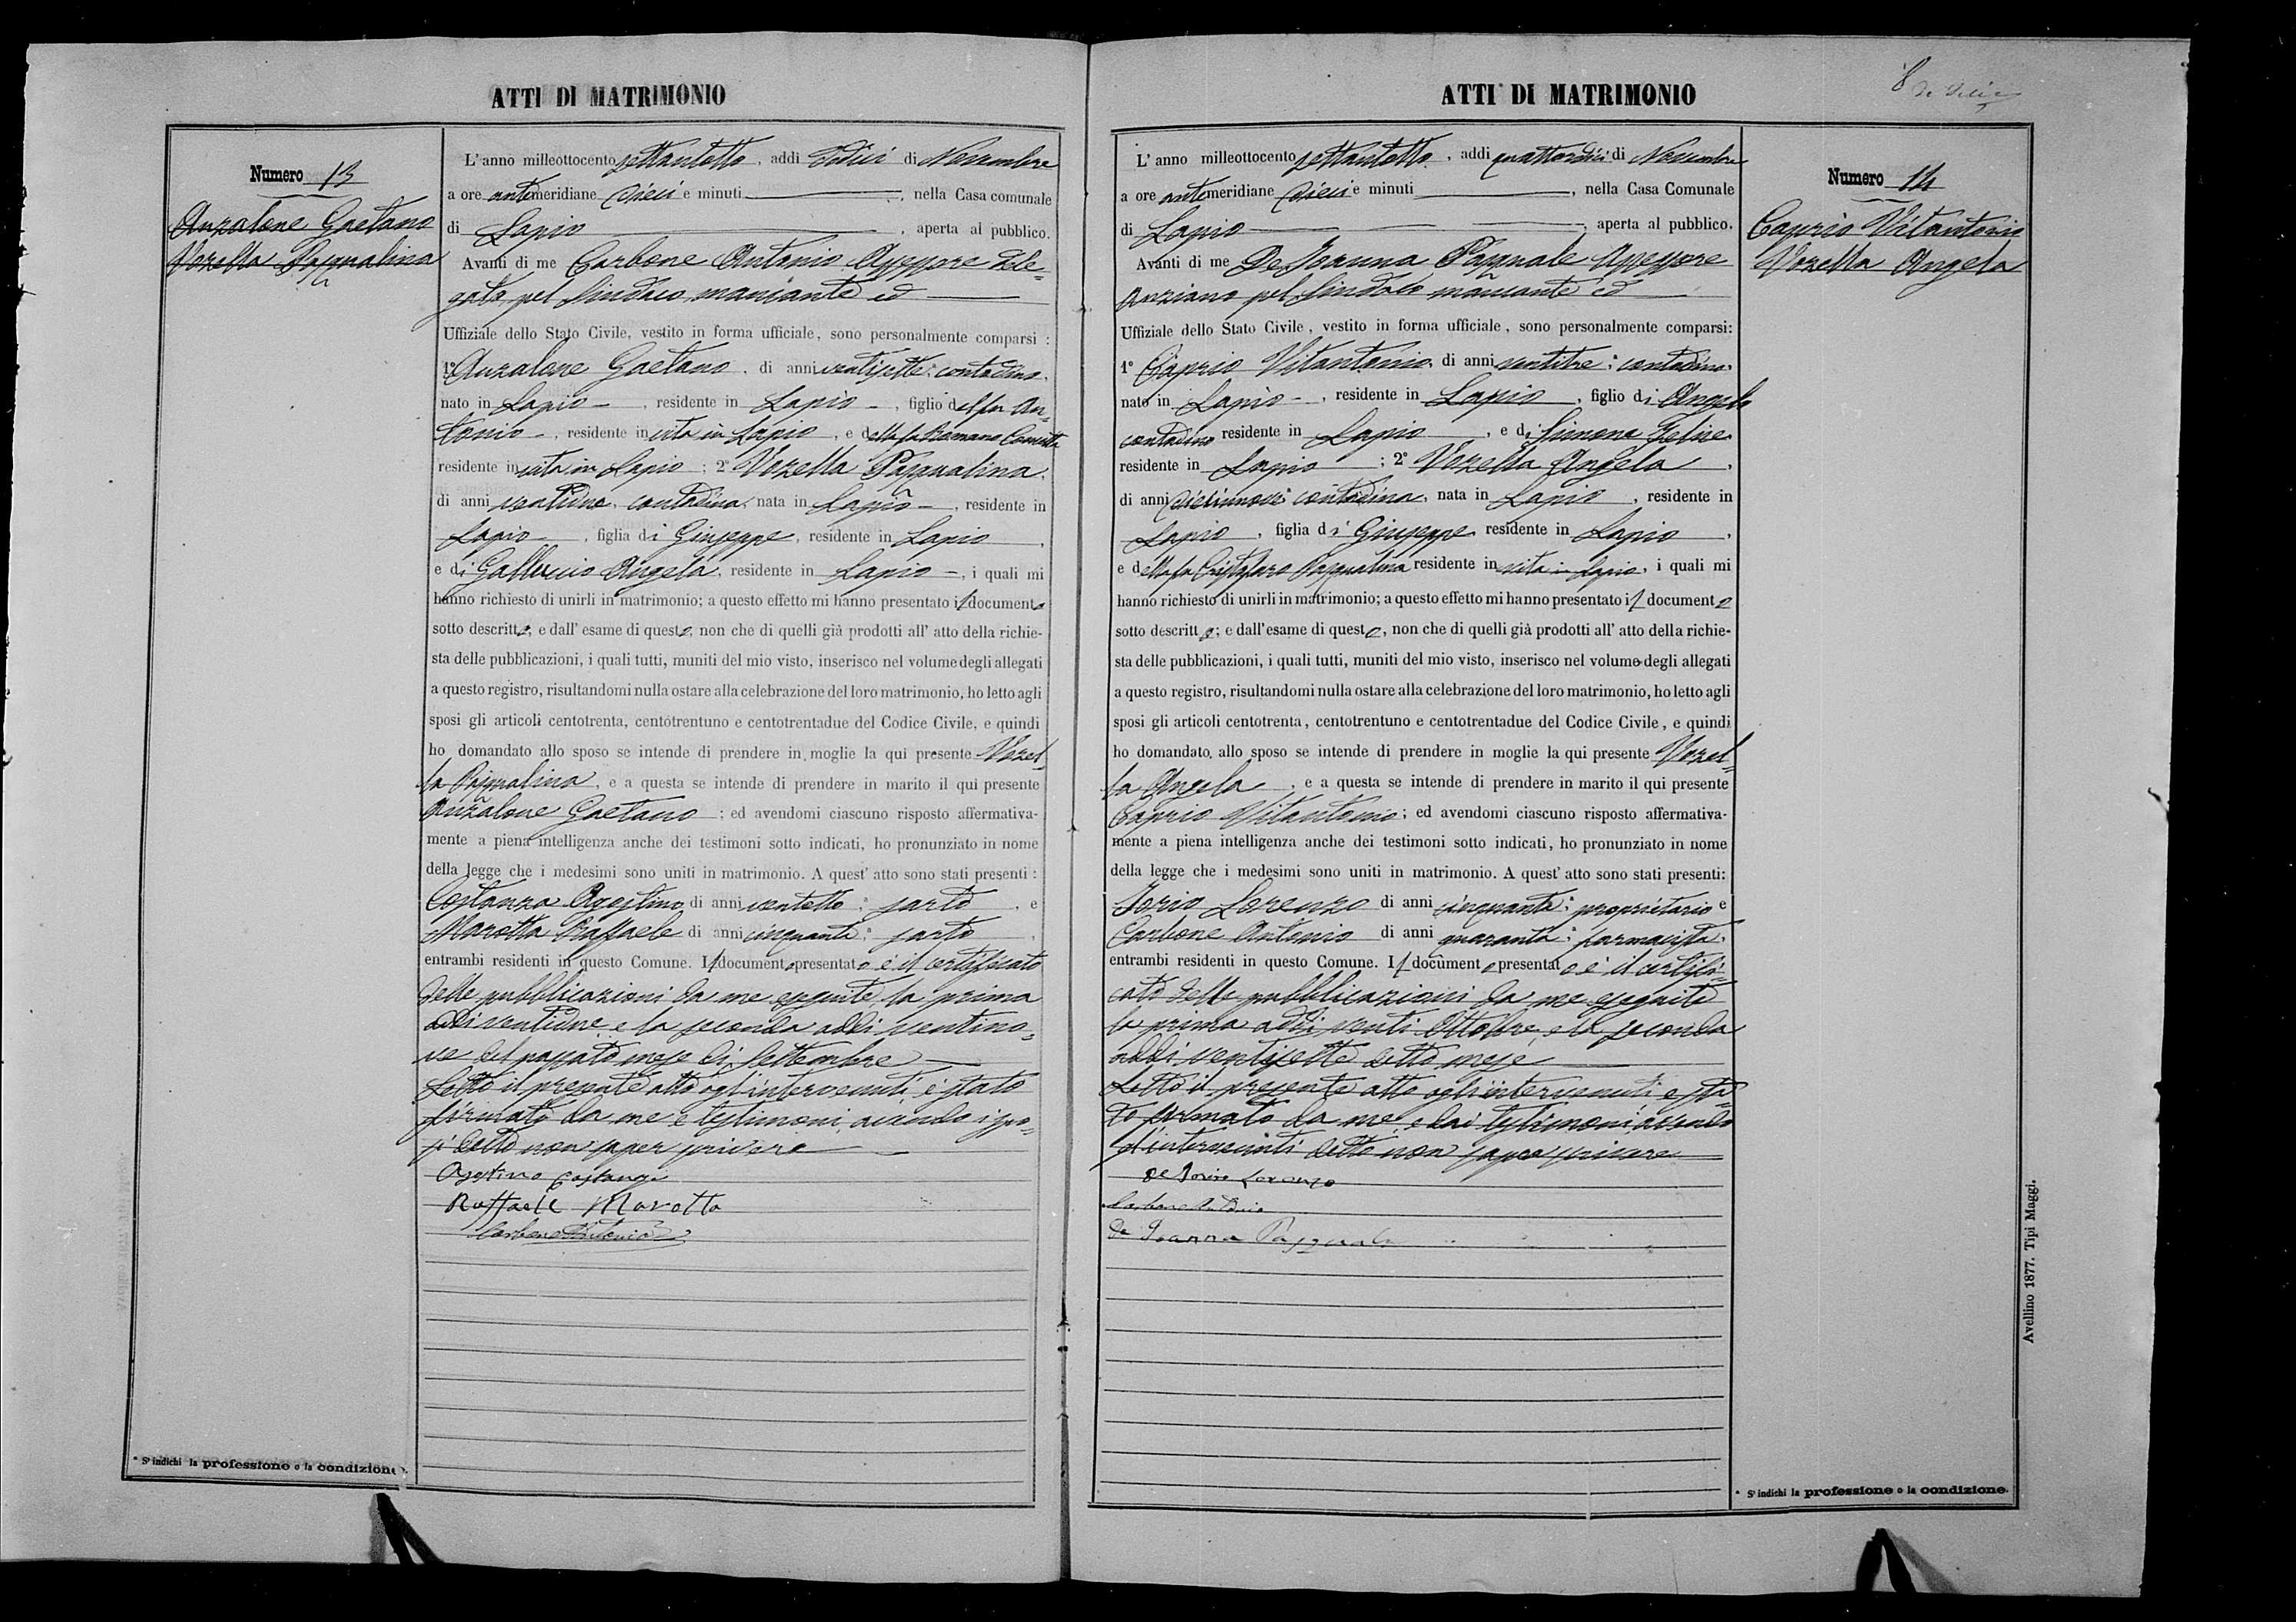 ATTI DI MATRIMONIO
Numero 13
Anzalone Gaetano
Vozella Pasqualina
L'anno milleottocento settantotto, addì dodici di Novembre
a ore antimeridiane dieci e minuti , nella Casa comunale
di Lapio , aperta al pubblico.
Avanti di me Carbone Antonio Assessore Dele=
gato pel Sindaco mancante ed
Uffiziale dello Stato Civile, vestito in forma ufficiale, sono personalmente comparsi :
1° Anzalone Gaetano, di anni ventisette contadino,
nato in Lapio, residente in Lapio, figlio del fu An=
tonio, residente in vita in Lapio, e della fu Romano
residente in vita in Lapio ; 2° Vozella Pasqualina,
di anni ventidue, contadina, nata in Lapio, residente in
Lapio, figlia di Giuseppe, residente in Lapio,
e di Galluccio Angela, residente in Lapio, i quali mi
hanno richiesto di unirli in matrimonio; a questo effetto mi hanno presentato il documento
sotto descritto; e dall'esame di questo, non che di quelli già prodotti all'atto della richie-
sta delle pubblicazioni, i quali tutti, muniti del mio visto, inserisco nel volume degli allegati
a questo registro, risultandomi nulla ostare alla celebrazione del loro matrimonio, ho letto agli
sposi gli articoli centotrenta, centotrentuno e centotrentadue del Codice Civile, e quindi
ho domandato allo sposo se intende di prendere in moglie la qui presente Vozel=
la Pasqualina, e a questa se intende di prendere in marito il qui presente
Anzalone Gaetano ; ed avendomi ciascuno risposto affermativa-
mente a piena intelligenza anche dei testimoni sotto indicati, ho pronunziato in nome
della legge che i medesimi sono uniti in matrimonio. A quest'atto sono stati presenti :
Costanza Agostino di anni ventotto sarto, e
Marotta Raffaele di anni cinquanta sarto,
entrambi residenti in questo Comune. Il documento presentato è il certificato
delle pubblicazioni da me eseguite la prima
addì ventidue e la seconda addì ventino=
ve del passato mese di Settembre
Letto il presente atto agl'intervenuti è stato
firmato da me e testimoni avendo i spo=
si detto non saper scrivere
Agostino Costanza
Raffaele Marotta
Carbone Antonio
* S'indichi la professione o la condizione.
ATTI DI MATRIMONIO
8
Numero 14
Caprio Vitantonio
Vozella Angela
L'anno milleottocento settantotto, addì quattordici di Novembre
a ore antimeridiane dieci e minuti , nella Casa Comunale
di Lapio , aperta al pubblico.
Avanti di me De Joanna Pasquale Assessore
Anziano pel Sindaco mancante ed
Uffiziale dello Stato Civile, vestito in forma ufficiale, sono personalmente comparsi:
1° Caprio Vitantonio, di anni ventitre contadino,
nato in Lapio, residente in Lapio, figlio di Angelo
contadino residente in Lapio, e di Simone Felice
residente in Lapio ; 2° Vozella Angela,
di anni diecinnove contadina, nata in Lapio, residente in
Lapio, figlia di Giuseppe residente in Lapio,
e della fu Cristofaro Pasqualina residente in vita in Lapio, i quali mi
hanno richiesto di unirli in matrimonio; a questo effetto mi hanno presentato il documento
sotto descritto; e dall'esame di questo, non che di quelli già prodotti all'atto della richie-
sta delle pubblicazioni, i quali tutti, muniti del mio visto, inserisco nel volume degli allegati
a questo registro, risultandomi nulla ostare alla celebrazione del loro matrimonio, ho letto agli
sposi gli articoli centotrenta, centotrentuno e centotrentadue del Codice Civile, e quindi
ho domandato allo sposo se intende di prendere in moglie la qui presente Vozel=
la Angela, e a questa se intende di prendere in marito il qui presente
Caprio Vitantonio; ed avendomi ciascuno risposto affermativa-
mente a piena intelligenza anche dei testimoni sotto indicati, ho pronunziato in nome
della legge che i medesimi sono uniti in matrimonio. A quest'atto sono stati presenti:
Iorio Lorenzo di anni cinquanta proprietario e
Carbone Antonio di anni quaranta farmacista,
entrambi residenti in questo Comune. Il documento presentato è il certifi=
cato delle pubblicazioni da me eseguite
la prima addì venti Ottobre, e la seconda
addì ventisette detto mese
Letto il presente atto agl'intervenuti è sta=
to firmato da me, e dai testimoni, avendo
gl'intervenuti detto non saper scrivere
De Iorio Lorenzo
Carbone Antonio
De Joanna Pasquale
* S'indichi la professione o la condizione.
Avellino 1877. Tipi Maggi.